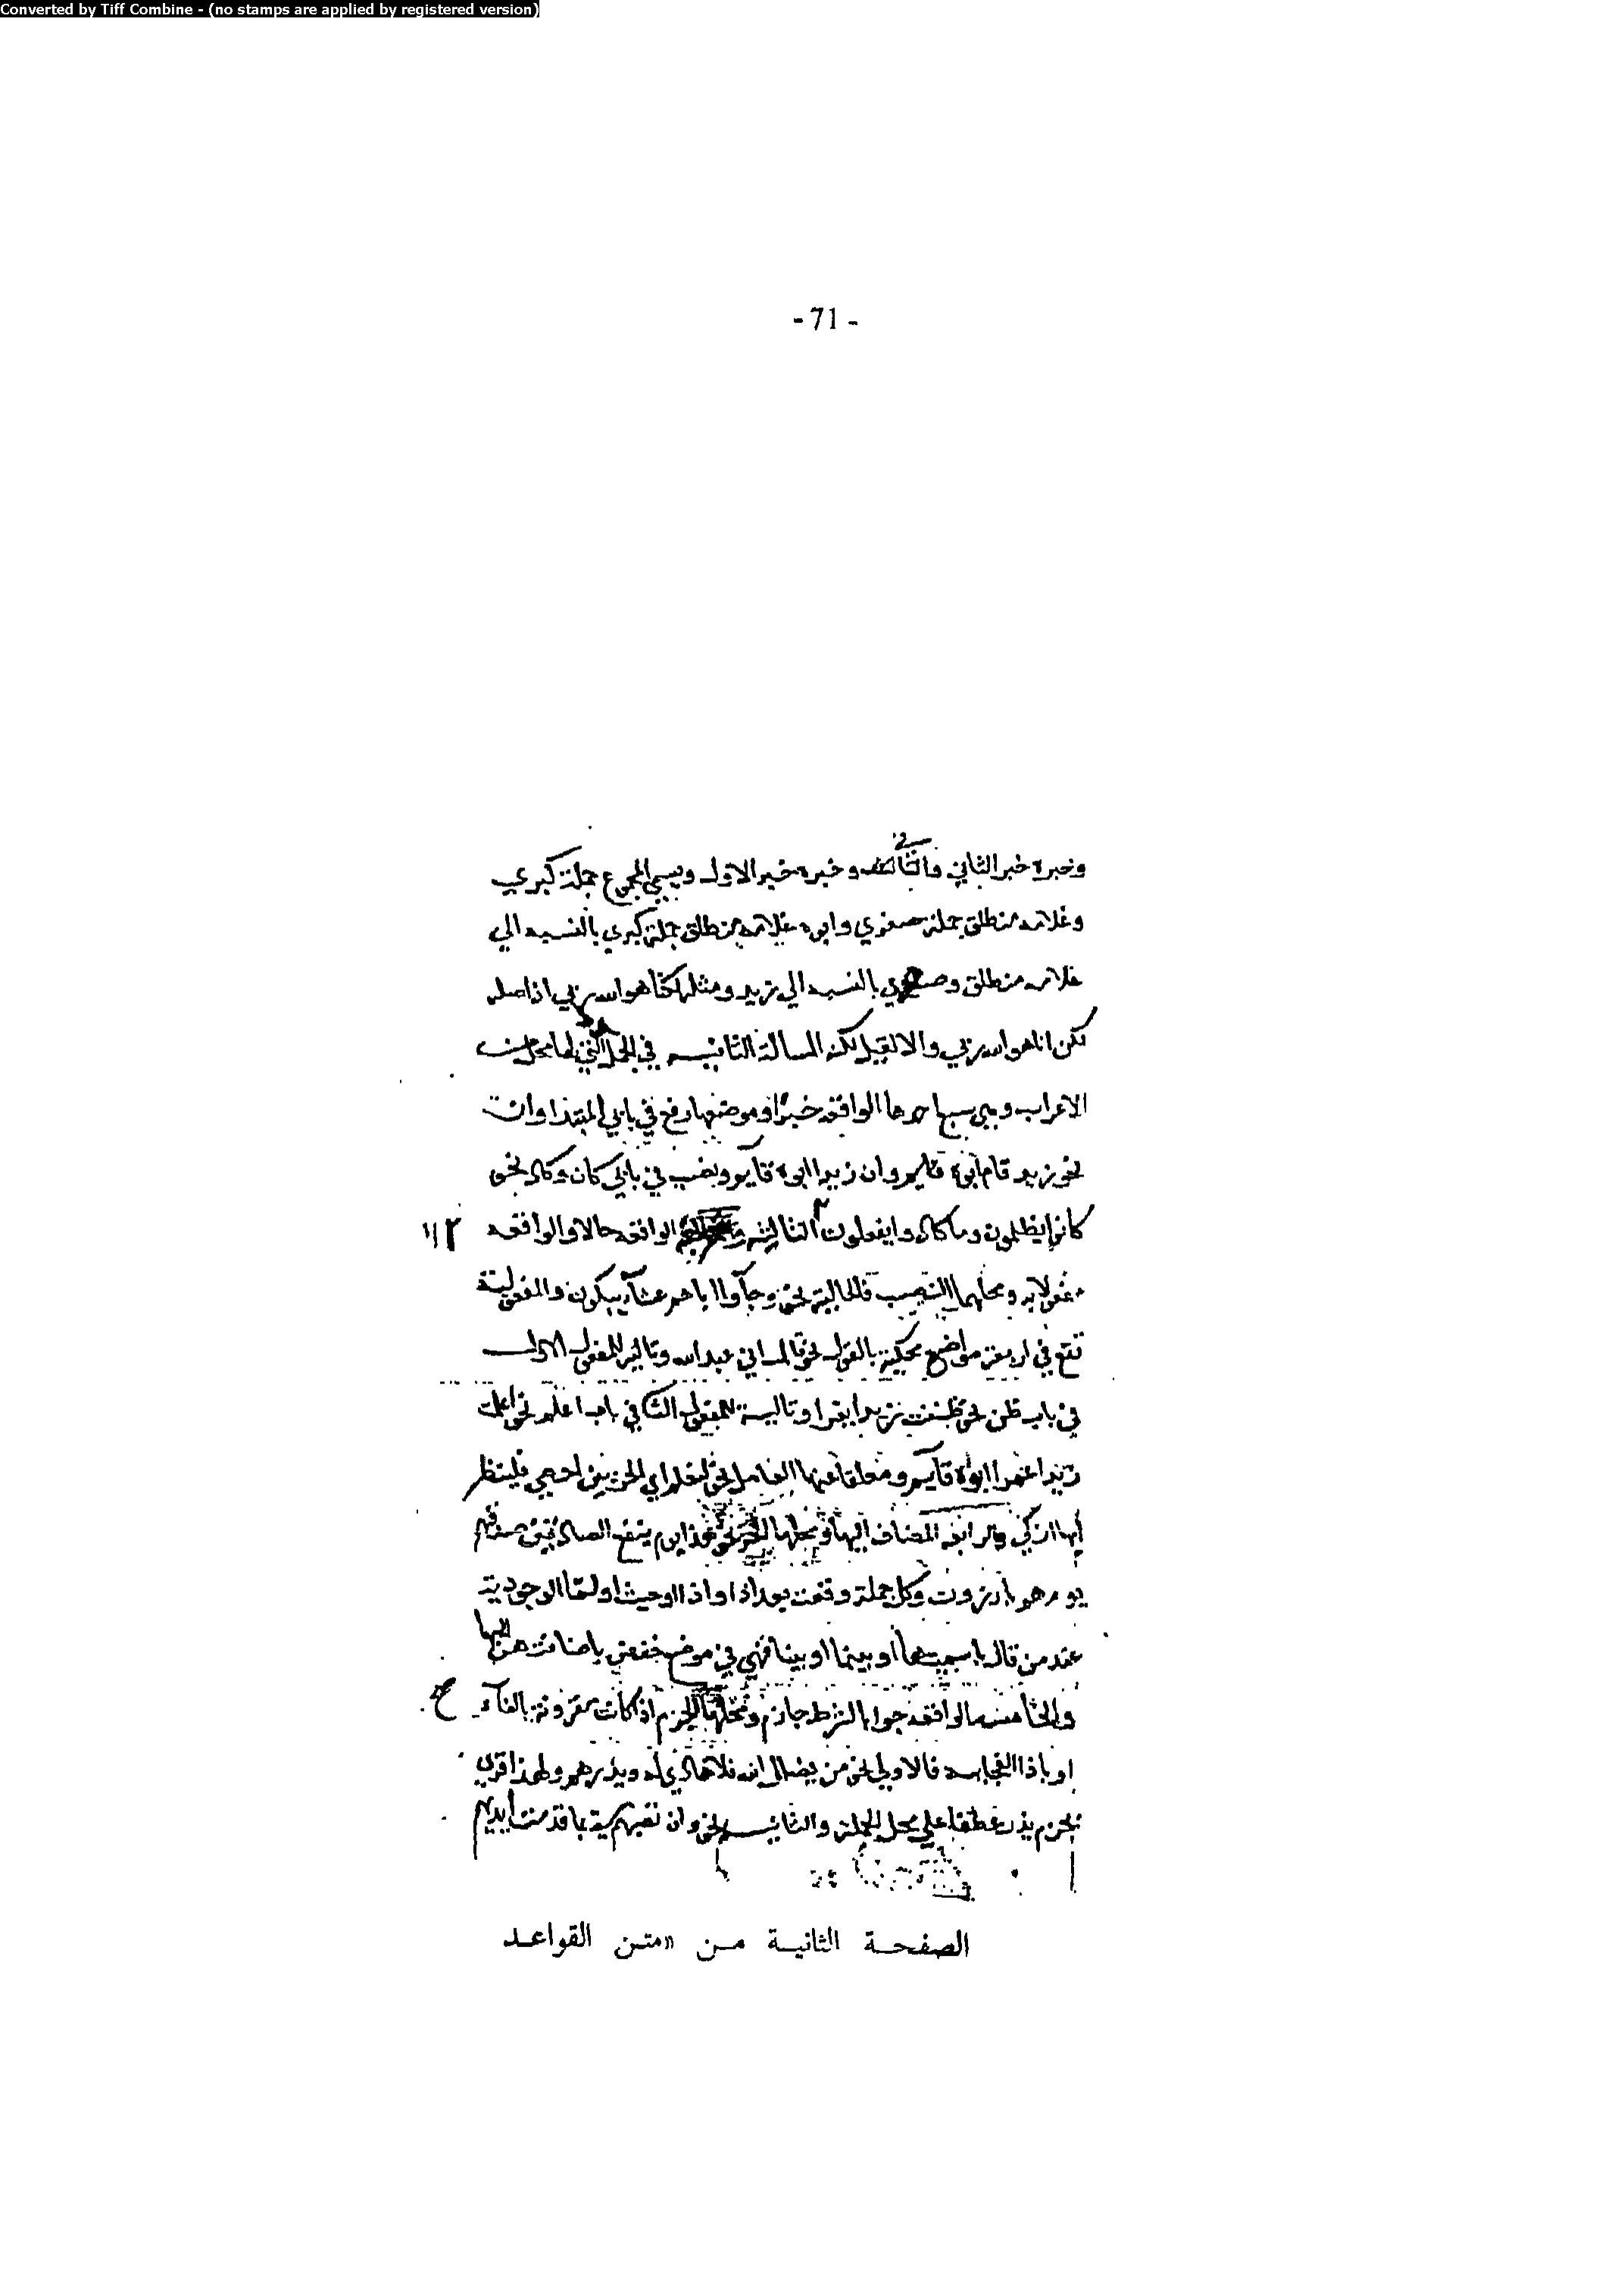 Converted by Tiff Combine - (no stamps are applied by registered version)
- 71 -
وخبره خبر الثاني والثاني وخبره خبر الاول ويسمي المجموع جملة كبري
وغلامه منطلق جملة صغري وابوه غلامه منطلق جملة كبري بالنسبه الي
غلامه منطلق وصغري بالنسبه الي زيد ومثله لكنا هو الله ربي اذ اصله
لكن انا هو الله ربي والا لقيل لكنه المسالة الثانيه في الجمل التي لها محل من
الاعراب وهي سبع احدها الواقعه خبرا وموضعها رفع في بابي المبتدا وان
نحو زيد قام ابوه وان زيدا ابوه قايم ونصب في بابي كان وكاد نحو
كانوا يظلمون وما كادوا يفعلون الثانيه والثالثه الواقعه حالا والواقعه
مفعولا به ومحلهما النصب فالحالية نحو وجآوا اباهم عشآ يبكون والمفعولية
تقع في اربعة مواضع محكية بالقول نحو قال اني عبد الله وتالية للمفعول الاول
في باب ظن نحو ظننت زيدا يقرا وتالية للمفعول الثاني في باب اعلم نحو اعلمت
زيدا عمرا ابوه قايم ومعلقا عنها العامل نحو لنعلم اي الحزبين احصي فلينظر
ايها ازكي والرابعه المضاف اليها ومحلها الجر نحو هذا يوم ينفع الصادقين صدقهم
يوم هم بارزون وكل جملة وقعت بعد اذ او اذا او حيث او لما الوجودية
عند من قال باسميتها او بينما او بينا فهي في موضع خفض باضافتهن اليها
والخامسه الواقعه جوابا لشرط جازم ومحلها الجزم اذا كانت مقرونة بالفآء
او باذا الفجاييه فالاولي نحو من يضلل الله فلا هادي له ويذرهم ولهذا قري
بجزم يذر عطفا علي محل الجملة والثانيه نحو وان تصبهم سية بما قدمت ايديهم
الصفحة الثانية من «متن القواعد